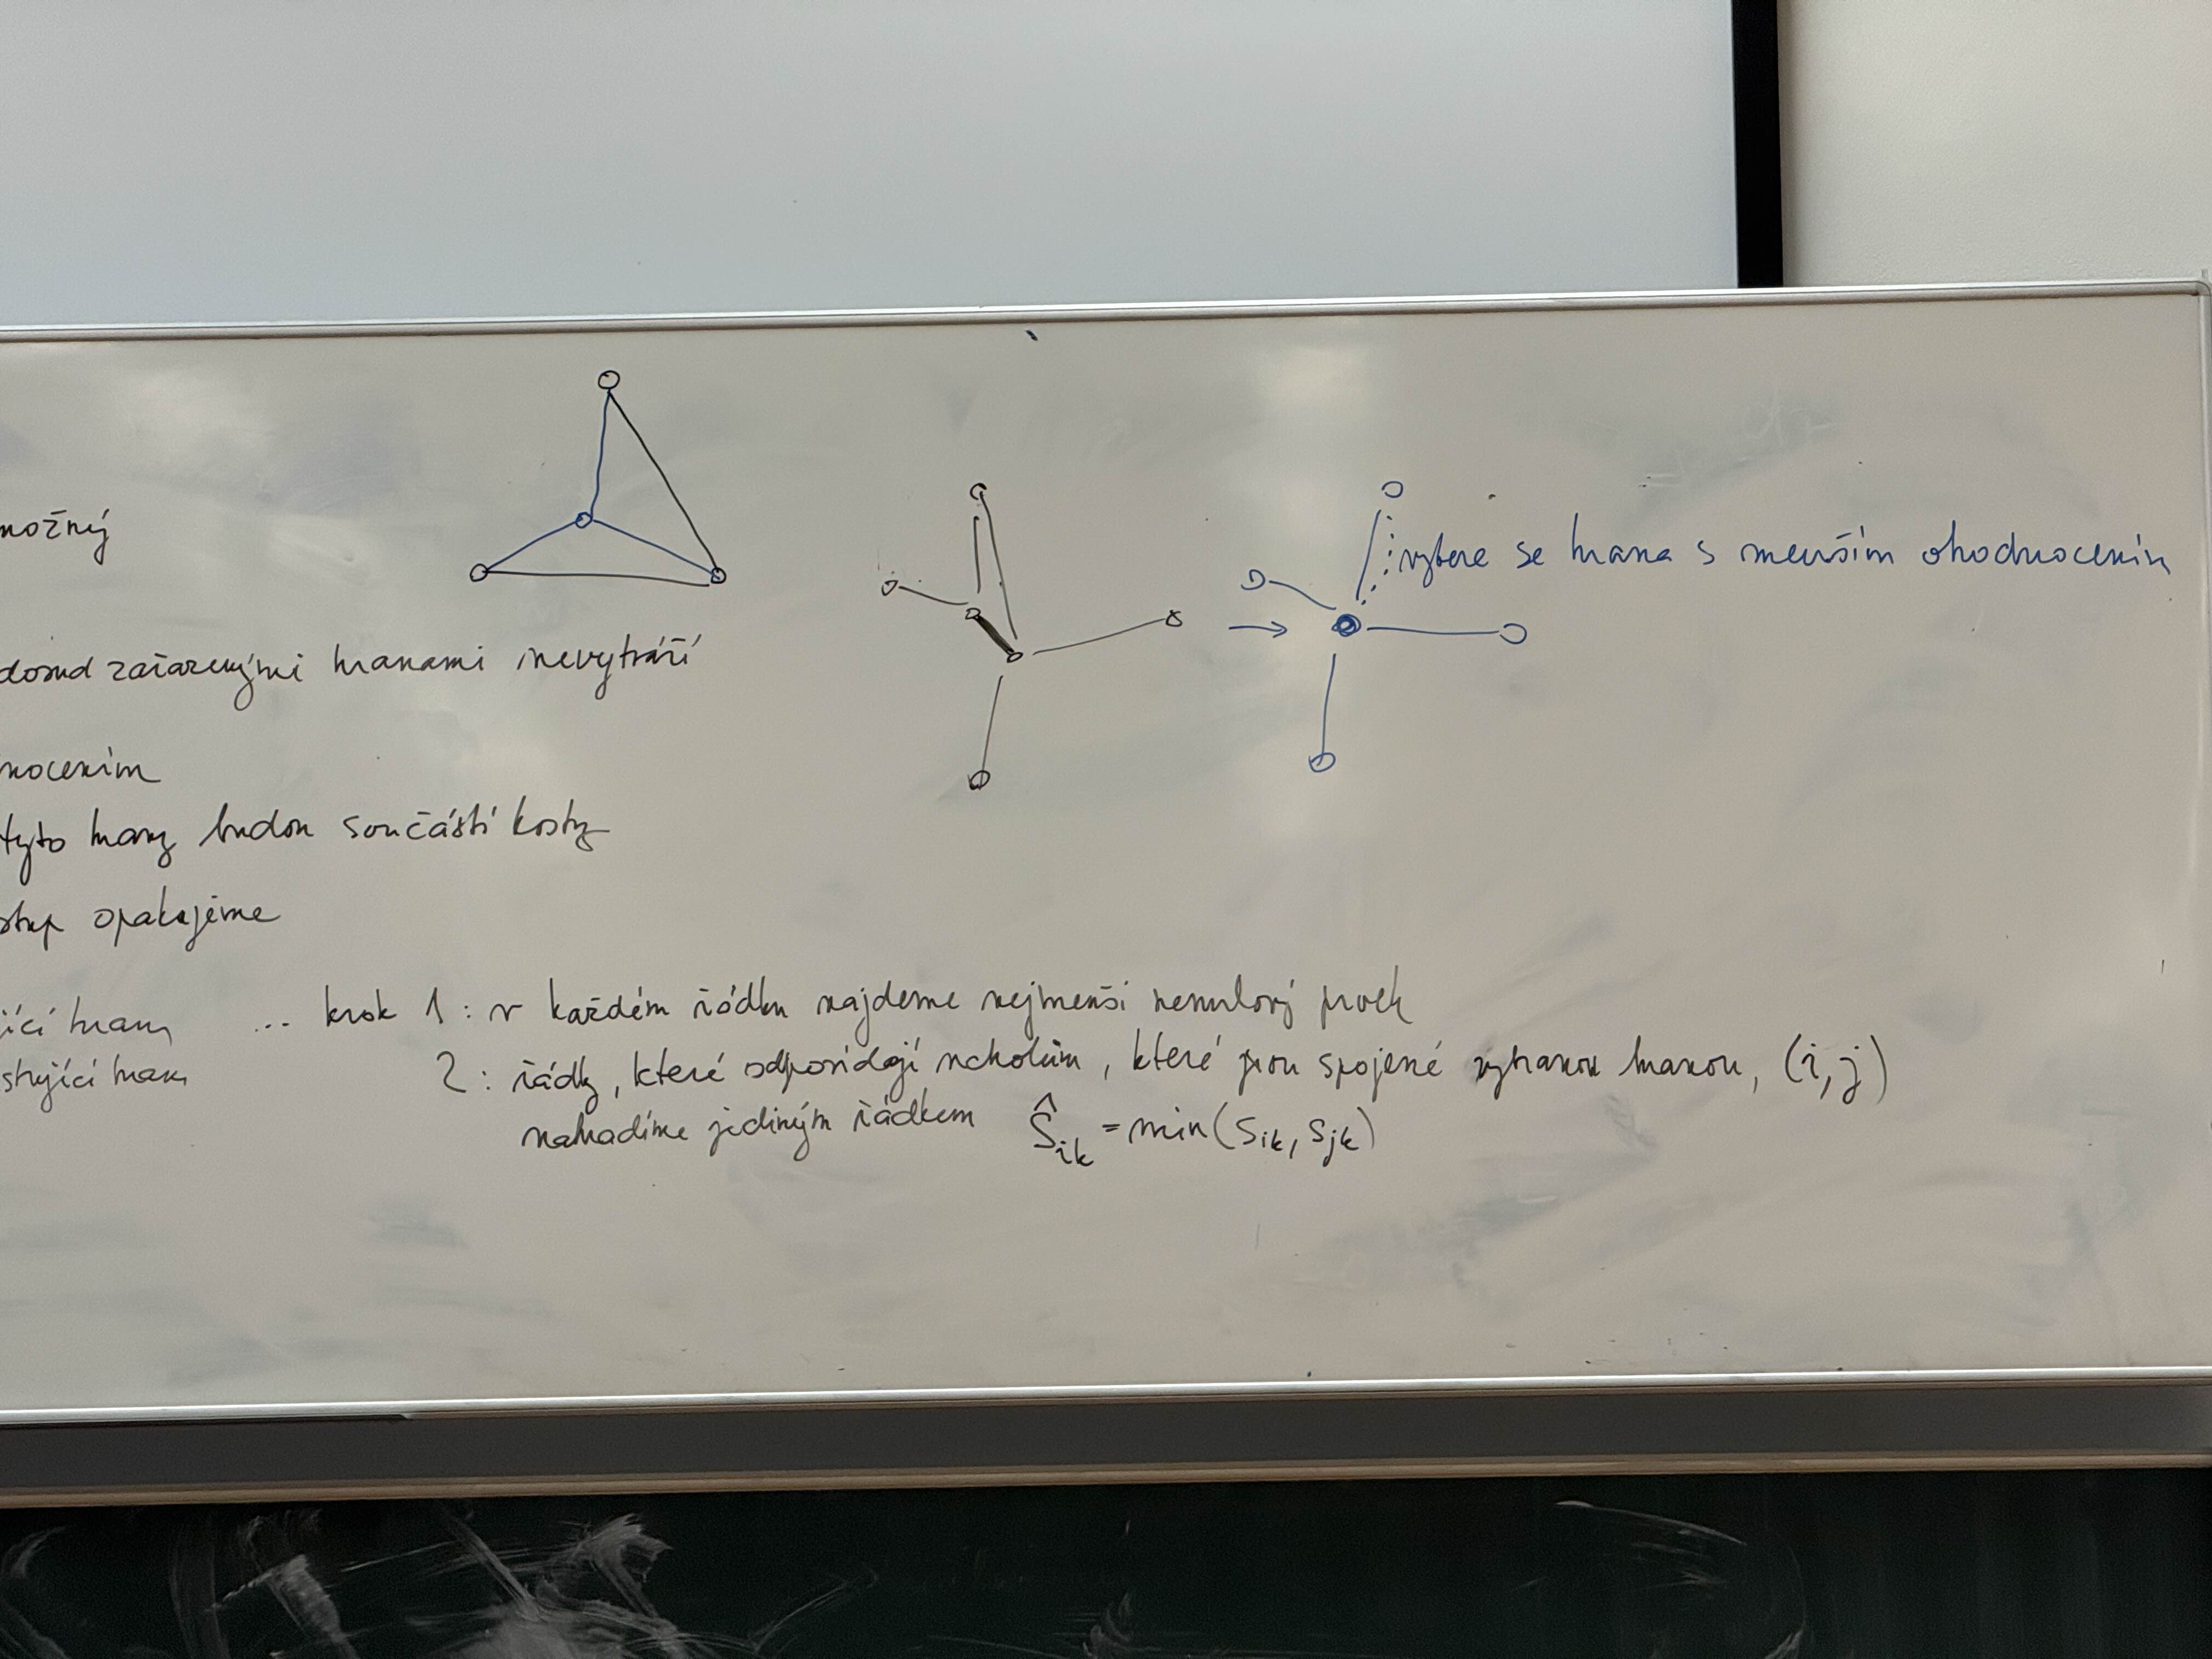 možný
vybere se hrana s menším ohodnocením
dosud zařazenými hranami nevytváří
nocením
tyto hrany budou součástí kostry
stup opakujeme
jící hrany ... krok 1: v každém řádku najdeme nejmenší nenulový prvek
stující hrany 2: řádky, které odpovídají uzlům, které jsou spojené vybranou hranou, (i,j)
nahradíme jediným řádkem ŝ_ik = min(s_ik, s_jk)